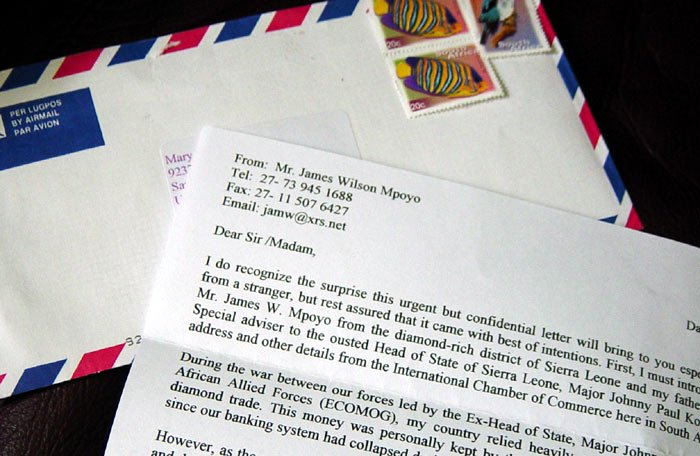 20c
South Africa
20c
PER LUGPOS
BY AIRMAIL
PAR AVION
Mary
923
Sa
From: Mr. James Wilson Mpoyo
Tel: 27- 73 945 1688
Fax: 27- 11 507 6427
Email: jamw@xrs.net
Dear Sir /Madam,
I do recognize the surprise this urgent but confidential letter will bring to you espe
from a stranger, but rest assured that it came with best of intentions. First, I must in
Mr. James W. Mpoyo from the diamond-rich district of Sierra Leone and my fathe
Special adviser to the ousted Head of State of Sierra Leone, Major Johnny Paul Ko
address and other details from the International Chamber of Commerce here in South A
During the war between our forces led by the Ex-Head of State, Major Johnn
African Allied Forces (ECOMOG), my country relied heavily
diamond trade. This money was personally kept by
since our banking system had collapsed d
However, as the